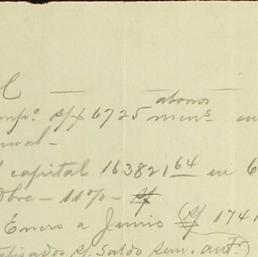 abonos
s/f 6725 mens. en
capital 163821 64 en 6
bre - 11% - s/
Enero a Junio (s/ 1741
lizados s/ Saldo sem. ant.)